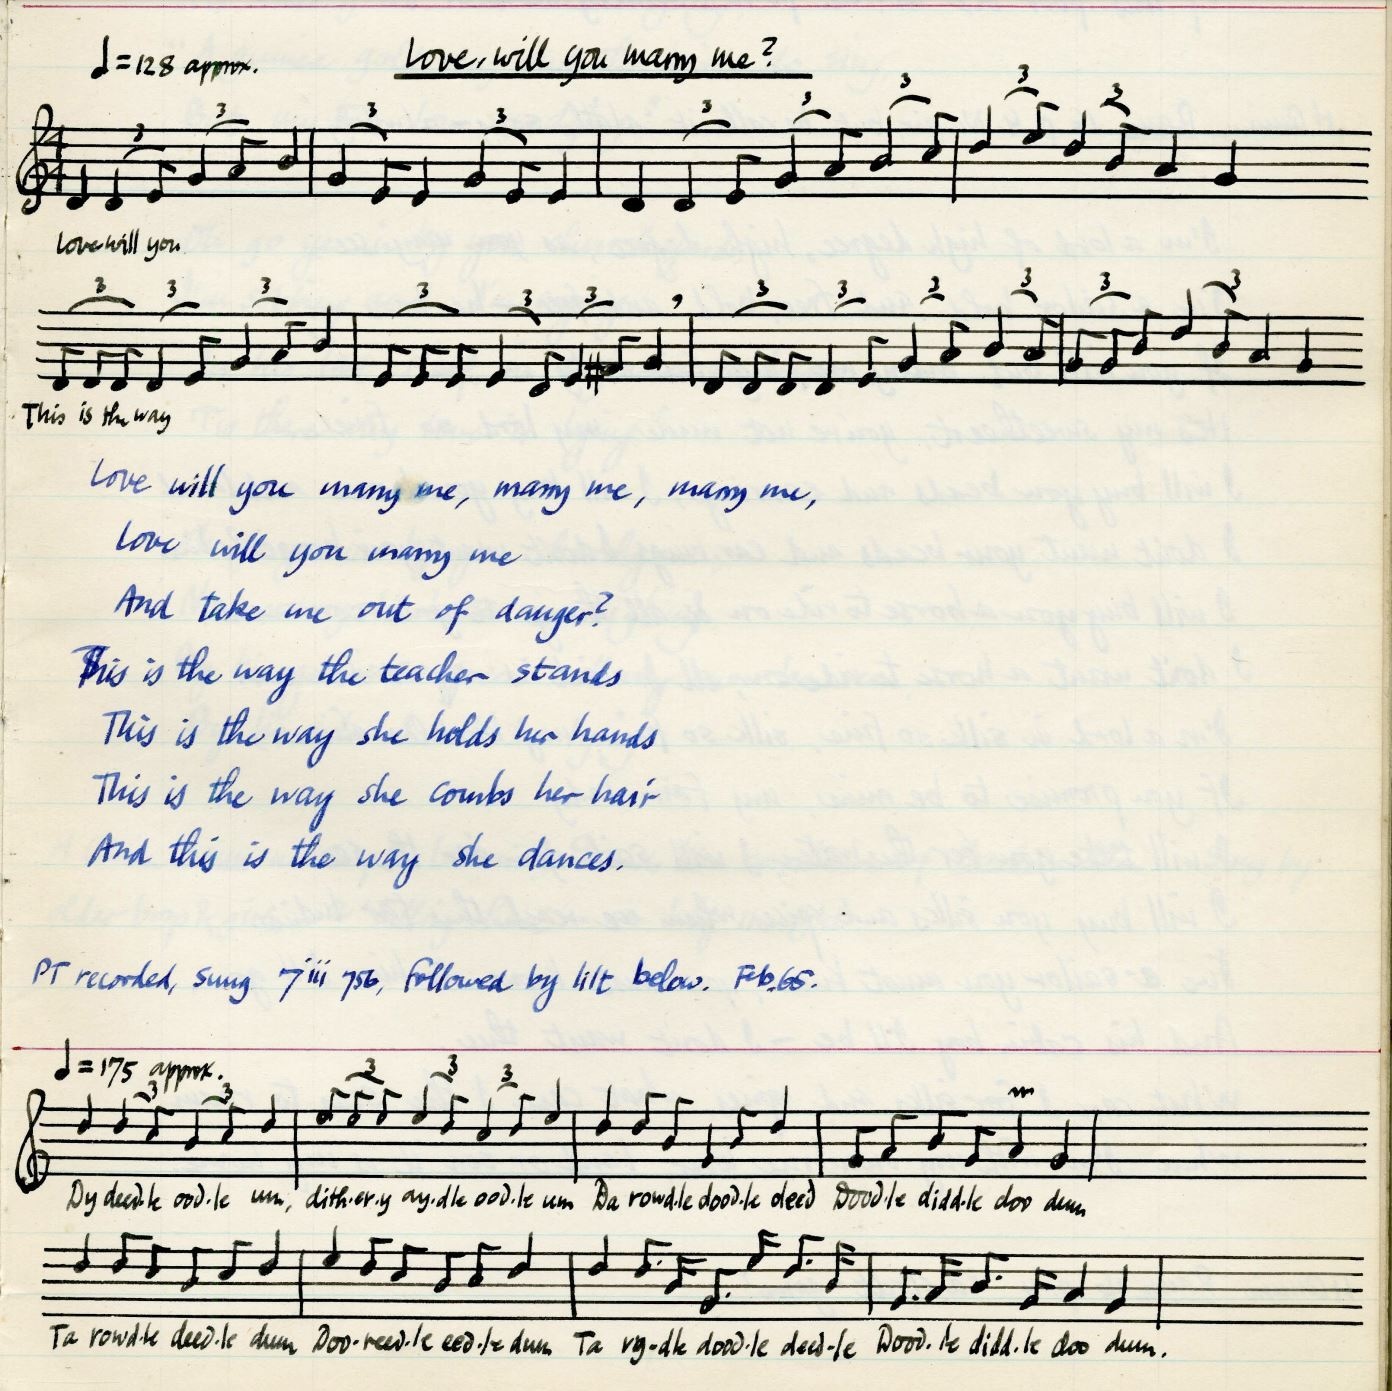 ♩=128 approx.
Love, will you marry me?
Love will you
This is the way
Love will you marry me, marry me, marry me,
Love will you marry me
And take me out of danger?
This is the way the teacher stands
This is the way she holds her hands
This is the way she combs her hair
And this is the way she dances.
PT recorded, sung 7 iii 756, followed by lilt below. Feb. 65.
♩=175 approx.
Dy deed-le ood-le um, dith-er-y ay-dle ood-le um Da rowd-le dood-le deed Dood-le didd-le doo dum
Ta rowd-le deed-le dum Doo-reed-le eed-le dum Ta ry-dle dood-le deed-le Dood-le didd-le doo dum.